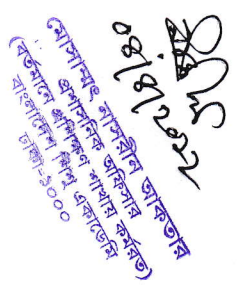 ০৪/০৯/২০২২
মোসাম্মৎ নাসরীন আকতার
প্রশাসনিক অফিসার
(বর্তমানে প্রশিক্ষণ শাখায় কর্মরত)
বাংলাদেশ শিশু একাডেমি
ঢাকা-১০০০